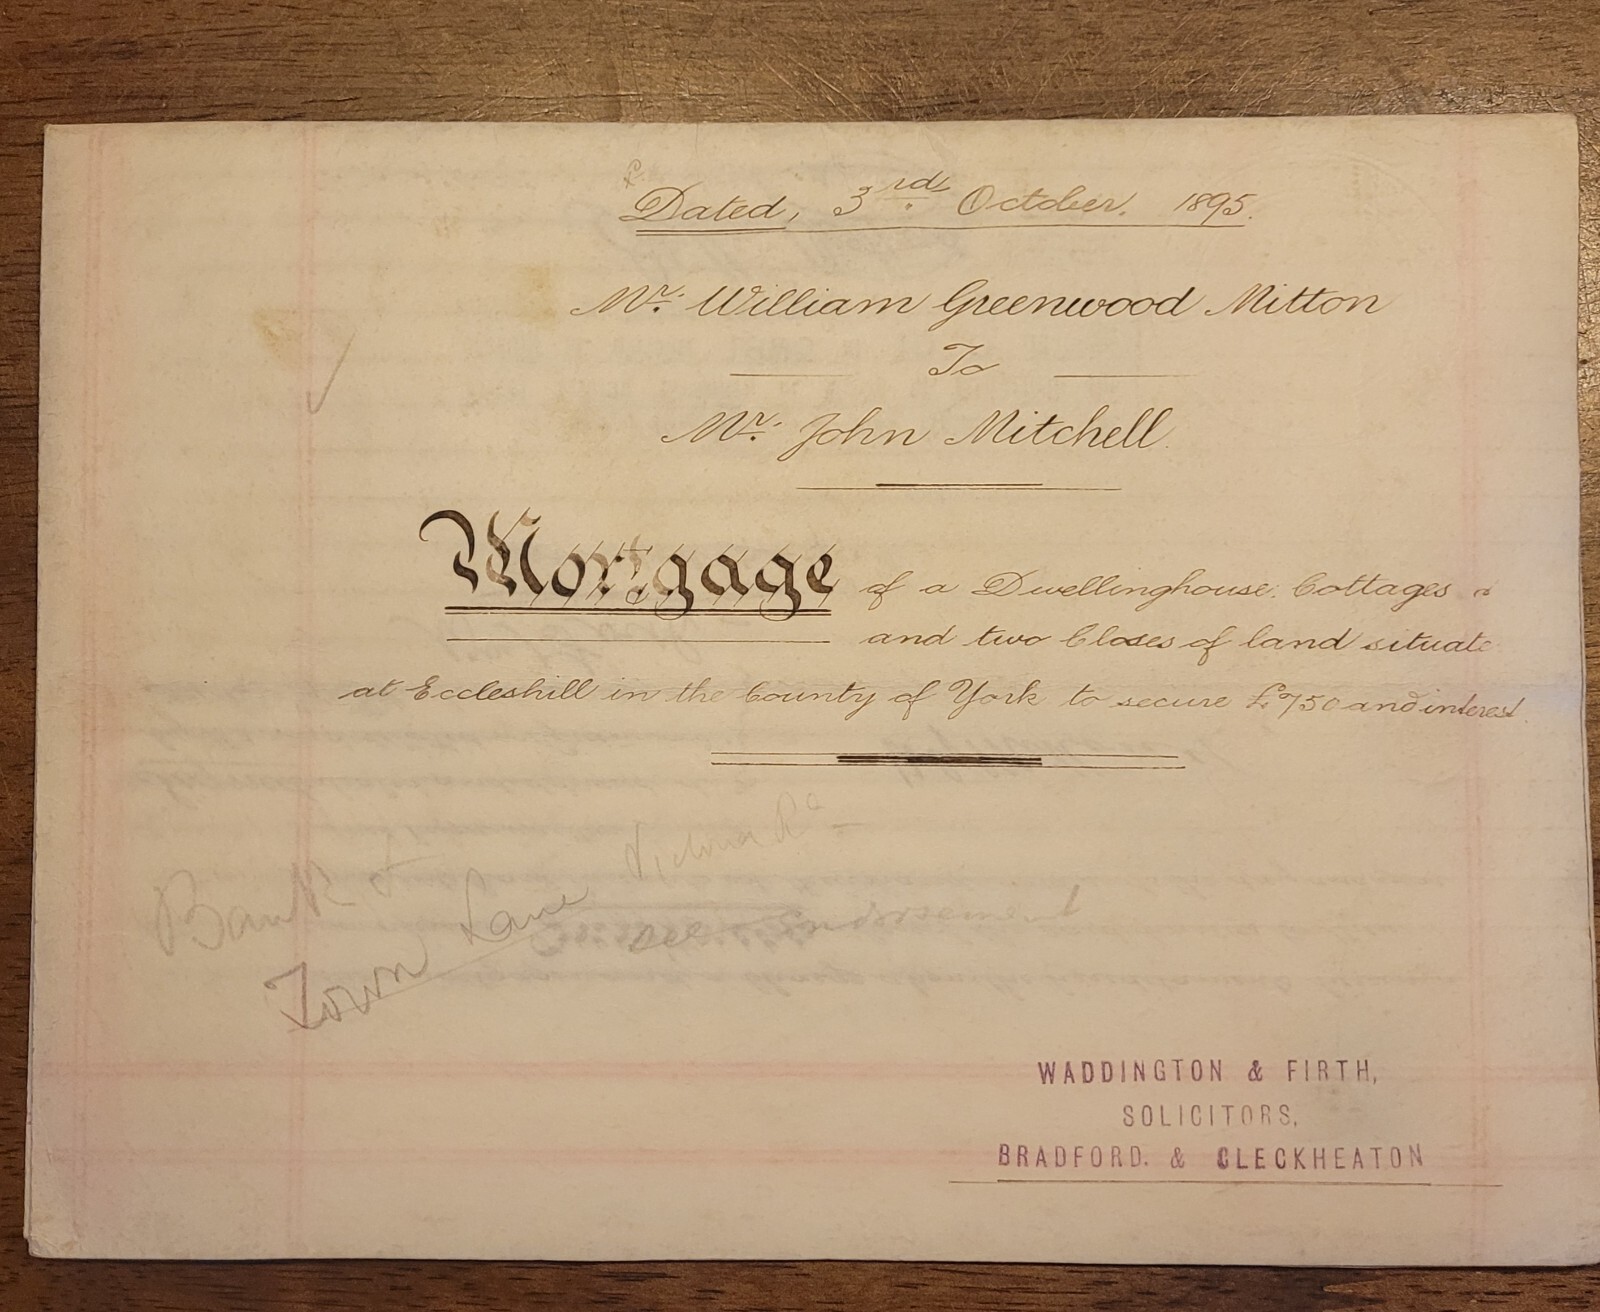 Dated, 3rd October, 1895.
Mr. William Greenwood Mitton
To
Mr. John Mitchell.
Mortgage of a Dwellinghouse, Cottages
and two Closes of land situate
at Eccleshill in the County of York to secure £750 and interest.
Victoria Rd
Bank St
Town Lane
see endorsement
WADDINGTON & FIRTH,
SOLICITORS,
BRADFORD. & CLECKHEATON